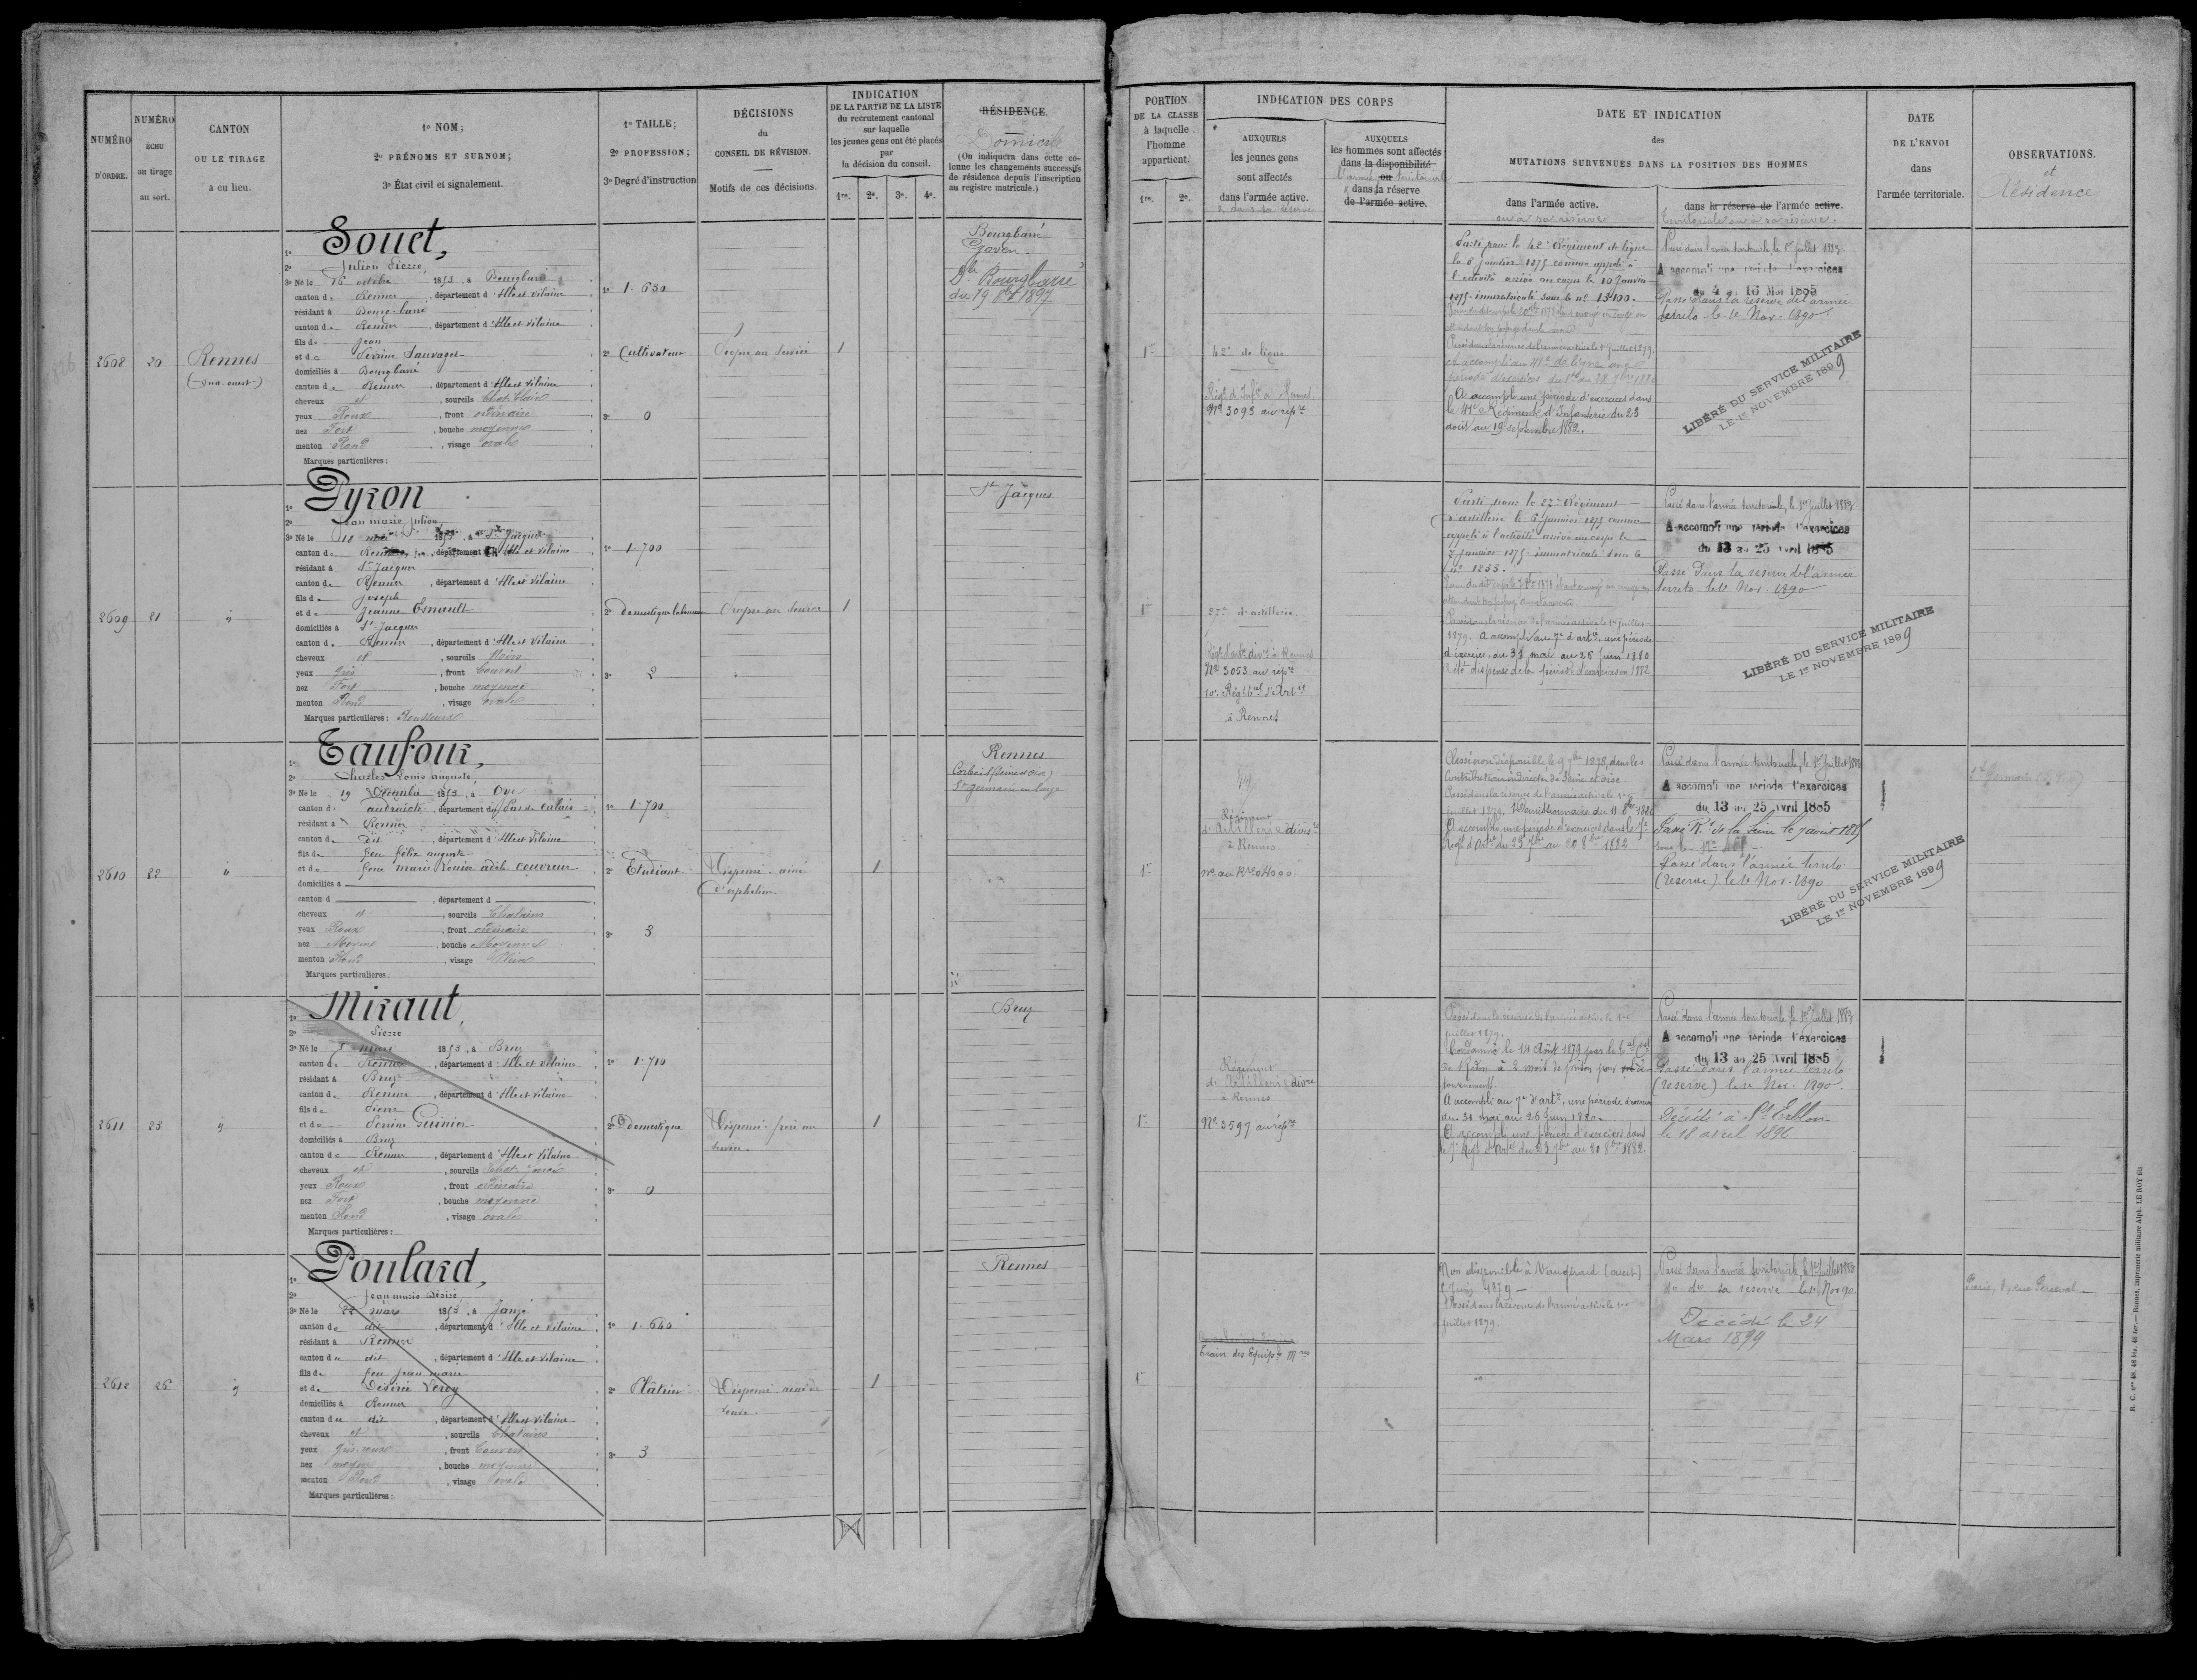 NUMÉRO
D'ORDRE.
NUMÉRO
ÉCHU
au tirage
au sort.
CANTON
OU LE TIRAGE
a eu lieu.
1° NOM;
2° PRÉNOMS ET SURNOM;
3° État civil et signalement.
1° TAILLE;
2° PROFESSION;
3° Degré d'instruction
DÉCISIONS
du
CONSEIL DE RÉVISION.
Motifs de ces décisions.
INDICATION
DE LA PARTIE DE LA LISTE
du recrutement cantonal
sur laquelle
les jeunes gens ont été placés
par
la décision du conseil.
1re. 2e. 3e. 4e.
RÉSIDENCE.
Domicile
(On indiquera dans cette co-
lonne les changements successifs
de résidence depuis l'inscription
au registre matricule.)
PORTION
DE LA CLASSE
à laquelle
l'homme
appartient.
1re. 2e.
INDICATION DES CORPS
AUXQUELS
les jeunes gens
sont affectés
dans l'armée active.
AUXQUELS
les hommes sont affectés
dans la disponibilité
l'armée ou territoriale
dans la réserve
de l'armée active.
DATE ET INDICATION
des
MUTATIONS SURVENUES DANS LA POSITION DES HOMMES
dans l'armée active.
ou à sa réserve
dans la réserve de l'armée active.
territoriale ou à sa réserve.
DATE
DE L'ENVOI
dans
l'armée territoriale.
OBSERVATIONS.
et
Résidence
2608
20
Rennes
(sud-ouest)
1° Souet,
2° Julien Pierre,
3° Né le 16 octobre 1853, à Bourgbarré
canton de Rennes, département d'Ille et Vilaine
résidant à Bourg-barré
canton de Rennes, département d'Ille et Vilaine
fils de Jean
et de Perrine Sauvaget
domiciliés à Bourgbarré
canton de Rennes, département d'Ille et Vilaine
cheveux et, sourcils Chat. Clairs
yeux Roux, front ordinaire
nez Fort, bouche moyenne
menton Rond, visage ovale
Marques particulières:
1° 1.630
2° Cultivateur
3° 0
Propre au service
1
Bourgbarré
Goven
Dle Bourgbarré
du 19 8bre 1897
1re
42e de ligne
Régt d'Infie à Rennes
No 3093 au répre
Parti pour le 42e Régiment de ligne
le 6 janvier 1875 comme appelé à
l'activité arrivé au corps le 10 Janvier
1875. immatriculé sous le no 13100.
Passé dans la réserve de l'armée active le 1er juillet 1879.
A accompli au 41e de ligne une
A accompli une période d'exercices dans
le 41e Régiment d'Infanterie du 23
août au 19 septembre 1882.
Passé dans l'armée territoriale, le 1er juillet 1883
A accompli une période d'exercices
du 4 au 16 Mai 1885
Passé dans la réserve de l'armée
territo le 1e Nov. 1890
LIBÉRÉ DU SERVICE MILITAIRE
LE 1er NOVEMBRE 1899
2609
21
"
1° Pyron
2° Jean marie Julien,
3° Né le 11 1853, à St Jacques
canton de Rennes, département d'Ille et Vilaine
résidant à St Jacques
canton de Rennes, département d'Ille et Vilaine
fils de Joseph
et de Jeanne Esnault
domiciliés à St Jacques
canton de Rennes, département d'Ille et Vilaine
cheveux et, sourcils Noirs
yeux Gris, front Couvert
nez Fort, bouche moyenne
menton Rond, visage ovale
Marques particulières: Rousseurs
1° 1.700
2° Domestique laboureur
3° 2
Propre au service
1
St Jacques
1re
27e d'artillerie
No 3053 au répre
10e Régt tal d'Artie
à Rennes
Parti pour le 27e Régiment
d'artillerie le 6 janvier 1875 comme
appelé à l'activité arrivé au corps le
7 janvier 1875. immatriculé sous le
no 1255.
Passé dans la réserve de l'armée active le 1er juillet
1879. A accompli au 7e d'artie, une période
d'exercice, du 31 mai au 26 Juin 1880
A été dispensé de la période d'exercices en 1882
Passé dans l'armée territoriale, le 1er Juillet 1883
A accompli une période d'exercices
du 13 au 25 Avril 1885
Passé dans la réserve de l'armée
territo. le 1e Nov. 1890
LIBÉRÉ DU SERVICE MILITAIRE
LE 1er NOVEMBRE 1899
2610
22
"
1° Taufour,
2° Charles Louis auguste,
3° Né le 19 Décembre 1853, à Ove
canton d' audruicke, département du Pas de Calais
résidant à Rennes
canton de dit, département d'Ille et Vilaine
fils de feu félix auguste
et de feue marie Louise adèle couvreur
domiciliés à
canton d , département d
cheveux et, sourcils Chatains
yeux Roux, front ordinaire
nez Moyen, bouche Moyenne
menton Rond, visage Plein
Marques particulières:
1° 1.700
2° Etudiant
3° 3
Dispensé. ainé
d'orphelins.
1
Rennes
Corbeil (Seine et oise)
St germain en laye
1re
Régiment
d'Artillerie divre
à Rennes
no au Rre 04000
Classé non disponible, le 9 1878, dans les
Contributions indirectes de Seine et oise.
Passé dans la réserve de l'armée active le 1er
juillet 1879. Démissionnaire du 11 8bre 1880
A accompli une période d'exercices dans le 7e
Régt d'Artie du 23 7bre au 20 8bre 1882
Passé dans l'armée territoriale, le 1er Juillet 1883
A accompli une période d'exercices
du 13 au 25 Avril 1885
Passé R.t de la Seine le 7 août 1885
Passé dans l'armée territo
(réserve) le 1e Nov. 1890
LIBÉRÉ DU SERVICE MILITAIRE
LE 1er NOVEMBRE 1899
2611
23
"
1° Miraut,
2° Pierre
3° Né le 5 mars 1853, à Bruz
canton de Rennes, département d'Ille et Vilaine
résidant à Bruz
canton de Rennes, département d'Ille et Vilaine
fils de Pierre
et de Perrine Guinier
domiciliés à Bruz
canton de Rennes, département d'Ille et Vilaine
cheveux et, sourcils Chat. foncé
yeux Roux, front ordinaire
nez Fort, bouche moyenne
menton Rond, visage ovale
Marques particulières:
1° 1.710
2° Domestique
3° 0
Dispensé. frère au
service.
1
Bruz
1re
Régiment
d'Artillerie divre
à Rennes
No 3597 au répre
Passé dans la réserve de l'armée active le 1er
juillet 1879.
Condamné le 14 Août 1879 par le tal Corl
de Redon à 2 mois de prison pour dé-
tournement.
A accompli au 7e d'artie, une période d'exercice
du 31 mai au 26 Juin 1880.
A accompli une période d'exercices dans
le 7e Régt d'Artie du 23 7bre au 20 8bre 1882.
Passé dans l'armée territoriale, le 1er Juillet 1883
A accompli une période d'exercices
du 13 au 25 Avril 1885
Passé dans l'armée territo
(réserve) le 1e Nov. 1890
Décédé à St Erblon
le 18 avril 1896
2612
26
"
1° Poulard,
2° Jean marie Désiré,
3° Né le 22 mars 1853, à Janzé
canton de dit, département d'Ille et Vilaine
résidant à Rennes
canton de dit, département d'Ille et Vilaine
fils de feu Jean marie
et de Désirée Leroy
domiciliés à Rennes
canton de dit, département d'Ille et Vilaine
cheveux et, sourcils Chatains
yeux Gris-roux, front Couvert
nez moyen, bouche moyenne
menton Rond, visage ovale
Marques particulières:
1° 1.640
2° Plâtrier
3° 3
Dispensé. ainé de
veuve.
1
Rennes
1re
Train des Equipes Mres
Non disponible à Vaugirard (ouest)
5 Juin 1879
Passé dans la réserve de l'armée active le 1er
juillet 1879.
Passé dans l'armée territoriale, le 1er Juillet 1883
do do sa reserve le 1e Nov 90
Décédé le 24
Mars 1899
R. C. nos 48, 48 bis, 48 ter. — Rennes, imprimerie militaire Alph. LE ROY fils